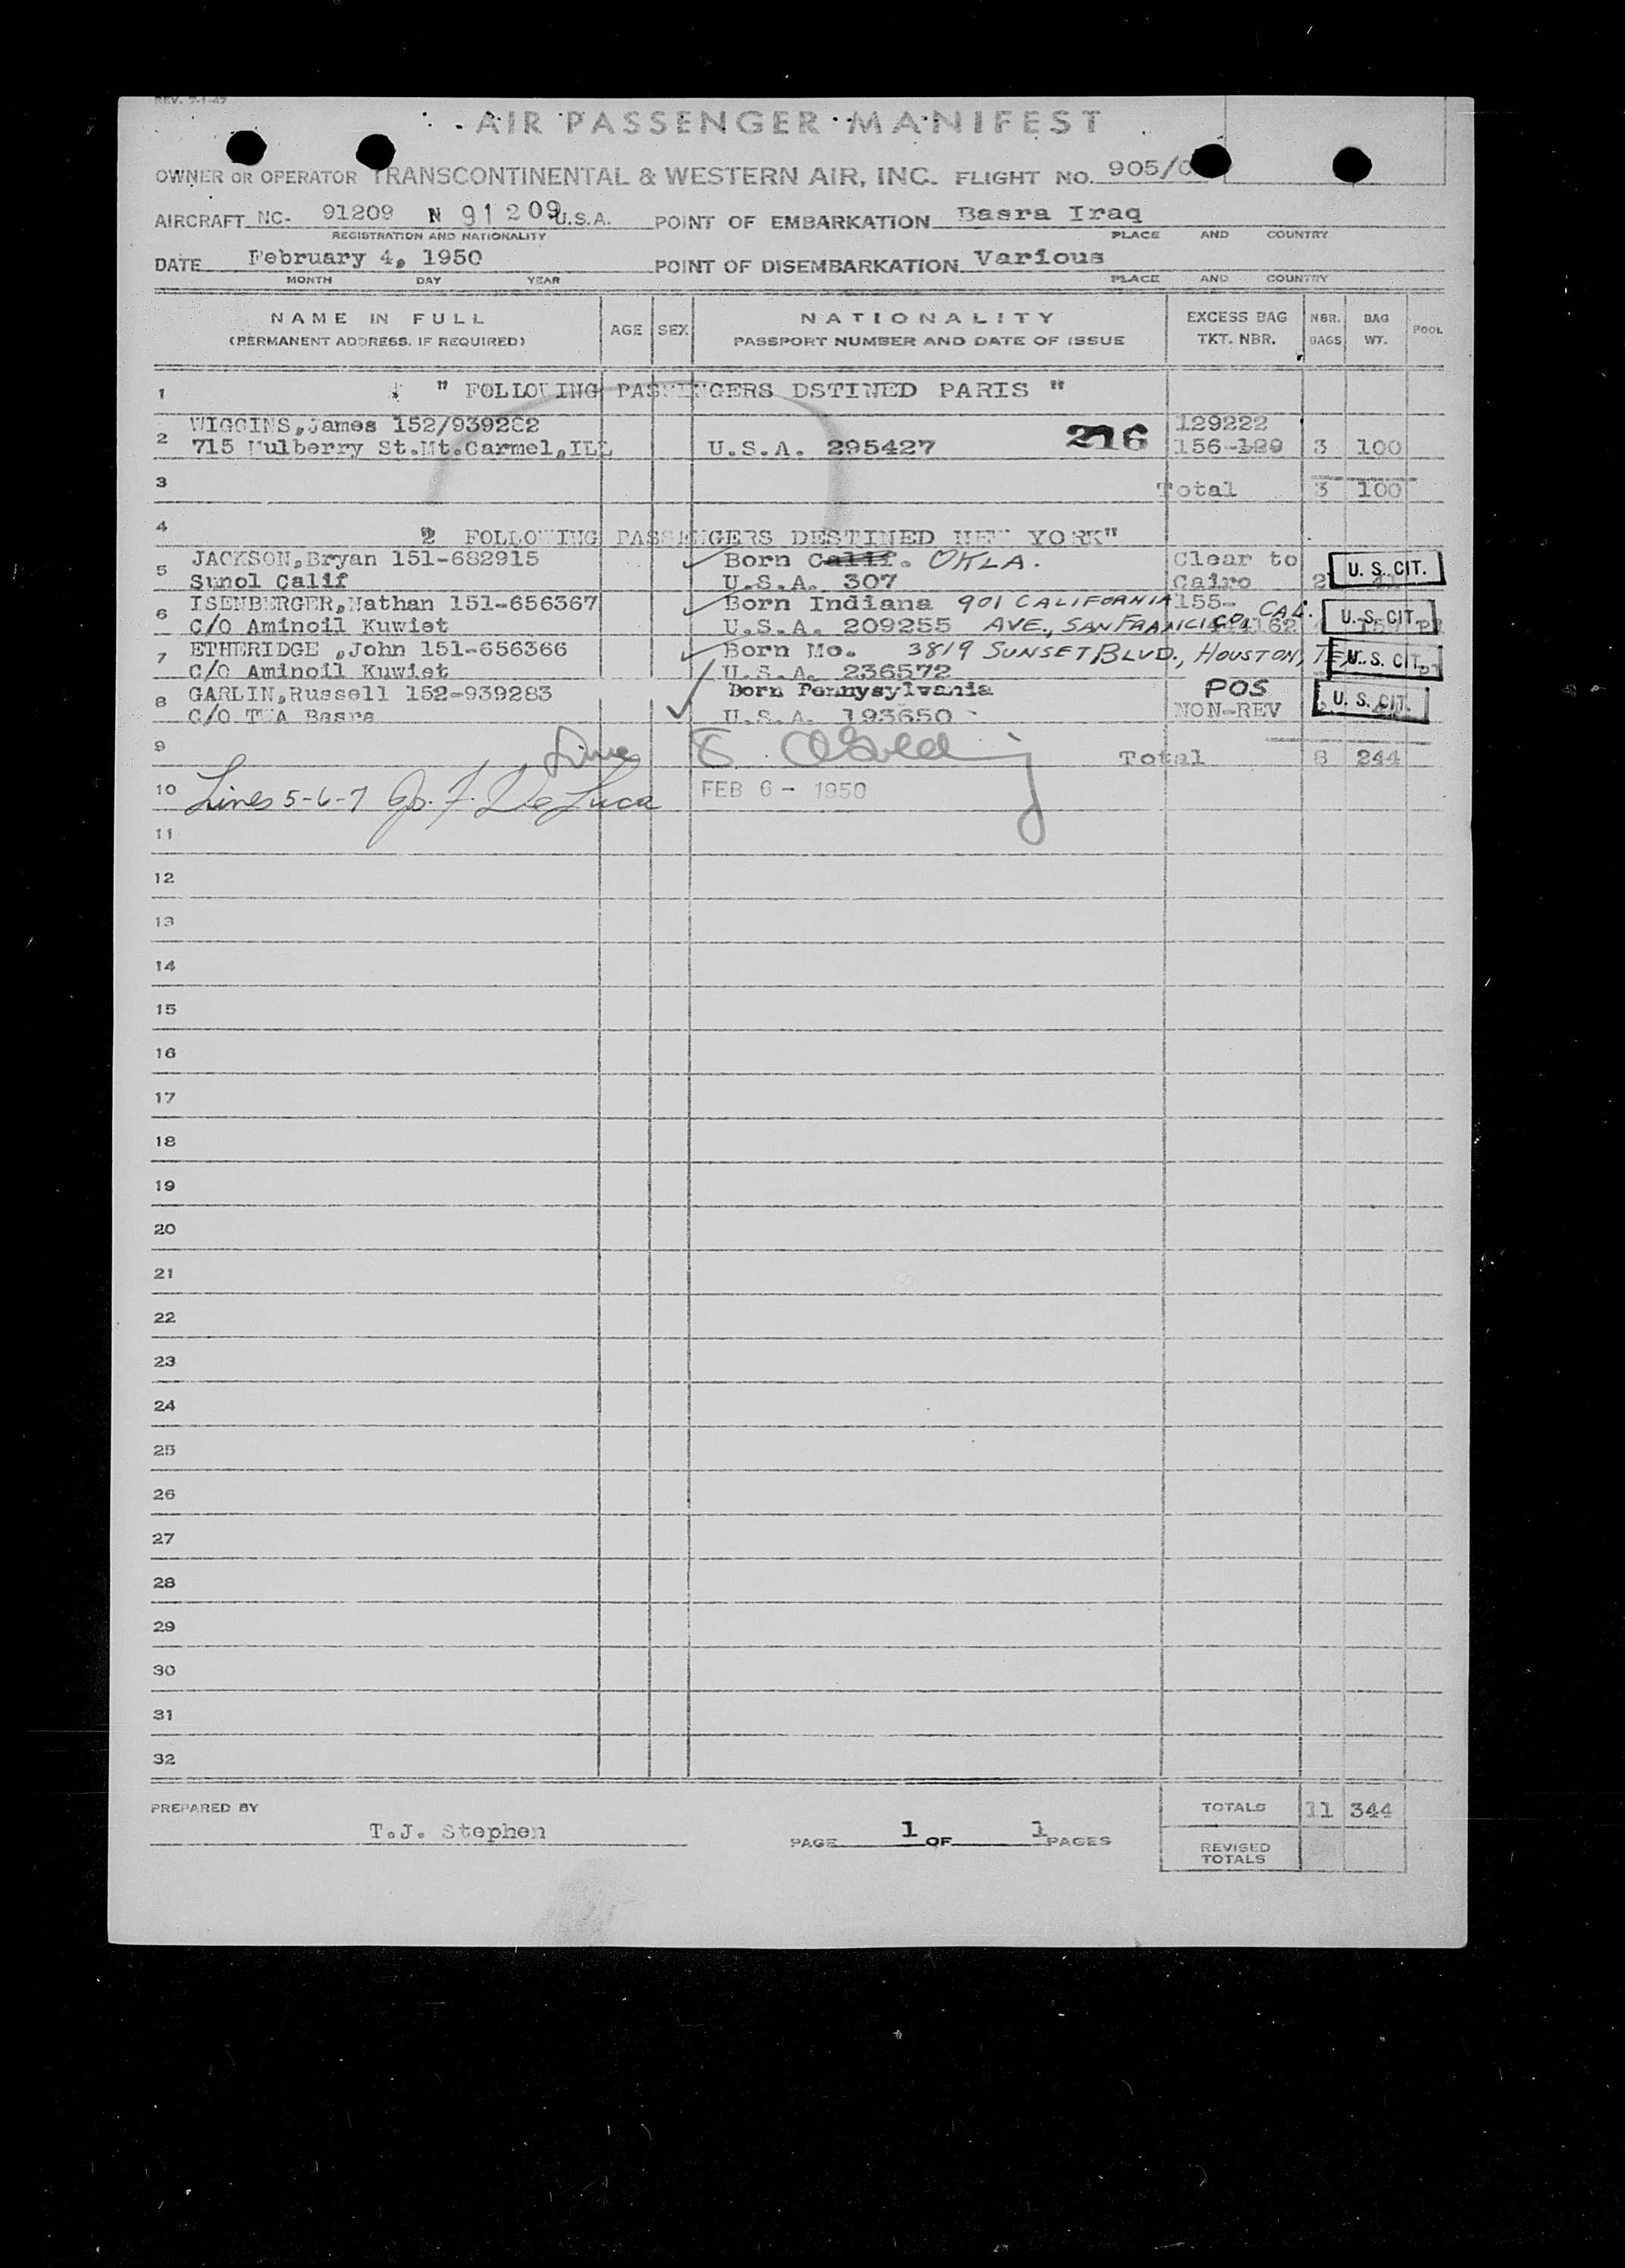 REV. 7-1-47
AIR PASSENGER MANIFEST
OWNER OR OPERATOR TRANSCONTINENTAL & WESTERN AIR, INC. FLIGHT NO. 905/
AIRCRAFT NC- 91209 N 91209 U.S.A. POINT OF EMBARKATION Basra Iraq
REGISTRATION AND NATIONALITY PLACE AND COUNTRY
DATE February 4, 1950 POINT OF DISEMBARKATION Various
MONTH DAY YEAR PLACE AND COUNTRY
NAME IN FULL AGE SEX NATIONALITY EXCESS BAG NBR. BAG POOL
(PERMANENT ADDRESS, IF REQUIRED) PASSPORT NUMBER AND DATE OF ISSUE TKT. NBR. BAGS WT.
1 " FOLLOWING PASSENGERS DSTINED PARIS "
WIGGINS, James 152/939282 129222
2 715 Mulberry St.Mt.Carmel, ILL U.S.A. 295427 216 156-120 3 100
3 Total 3 100
4 " FOLLOWING PASSENGERS DESTINED NEW YORK"
JACKSON, Bryan 151-682915 Born Calif. OKLA. Clear to
5 Sunol Calif U.S.A. 307 Cairo 2 41 U. S. CIT.
ISENBERGER, Nathan 151-656367 Born Indiana 901 CALIFORNIA 155-
6 C/O Aminoil Kuwiet U.S.A. 209255 AVE., SAN FRANCISCO, CAL. U. S. CIT.
ETHERIDGE , John 151-656366 Born Mo. 3819 SUNSET BLVD., HOUSTON, TEX.
7 C/O Aminoil Kuwiet U.S.A. 236572 U. S. CIT.
GARLIN, Russell 152-939283 Born Pennysylvania POS
8 C/O TWA Basra U.S.A. 193650 NON-REV U. S. CIT.
9 Line 8 Total 8 244
10 Lines 5-6-7 Jos. F. De Luca FEB 6 - 1950
11
12
13
14
15
16
17
18
19
20
21
22
23
24
25
26
27
28
29
30
31
32
PREPARED BY TOTALS 11 344
T.J. Stephen PAGE 1 OF 1 PAGES
REVISED
TOTALS